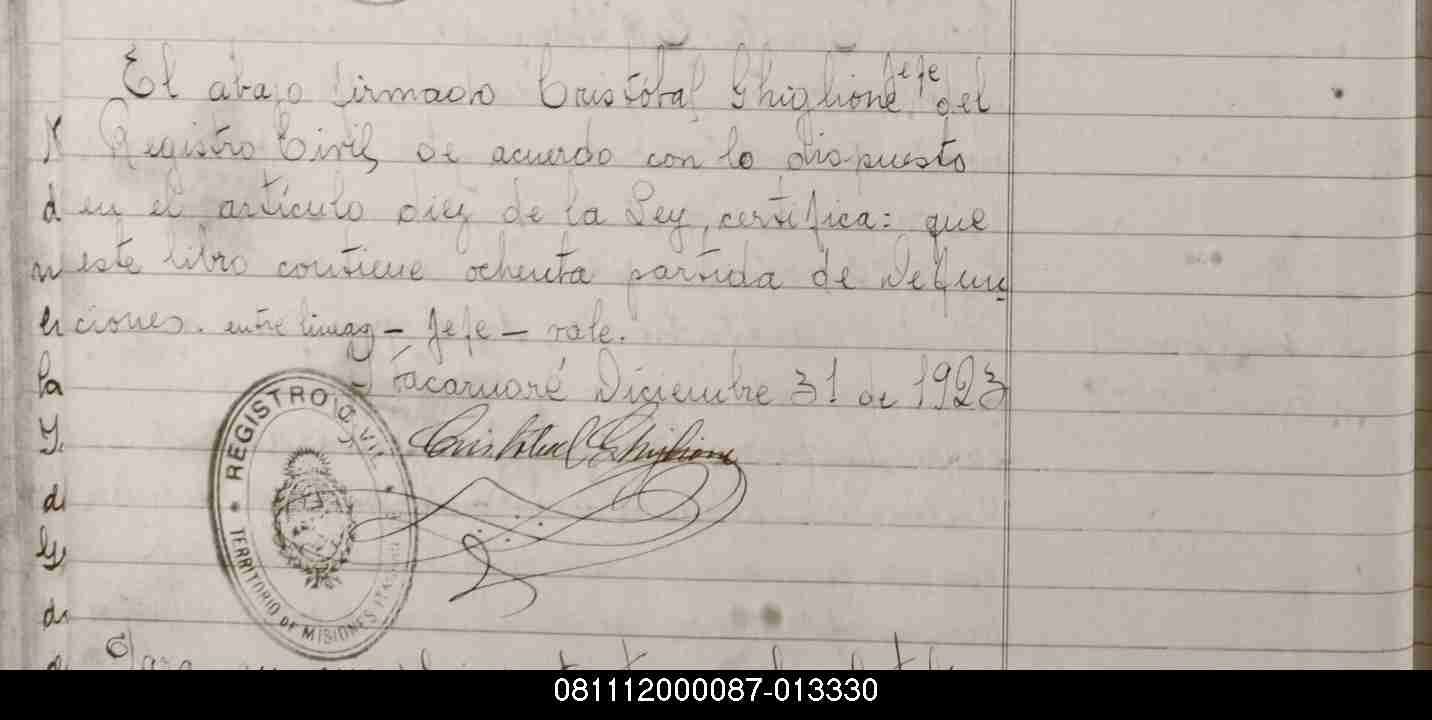 El abajo firmado Cristóbal Ghiglione jefe del
Registro Civil, de acuerdo con lo dispuesto
d en el artículo diez de la Ley, certifica: que
este libro contiene ochenta partida de Defun
ciones. entre lineas - jefe - vale.
la
Itacaruaré Diciembre 31 de 1923
Y.
Cristobal Ghiglione
d
REGISTRO CIVIL
TERRITORIO DE MISIONES ITACARUARE
081112000087-013330